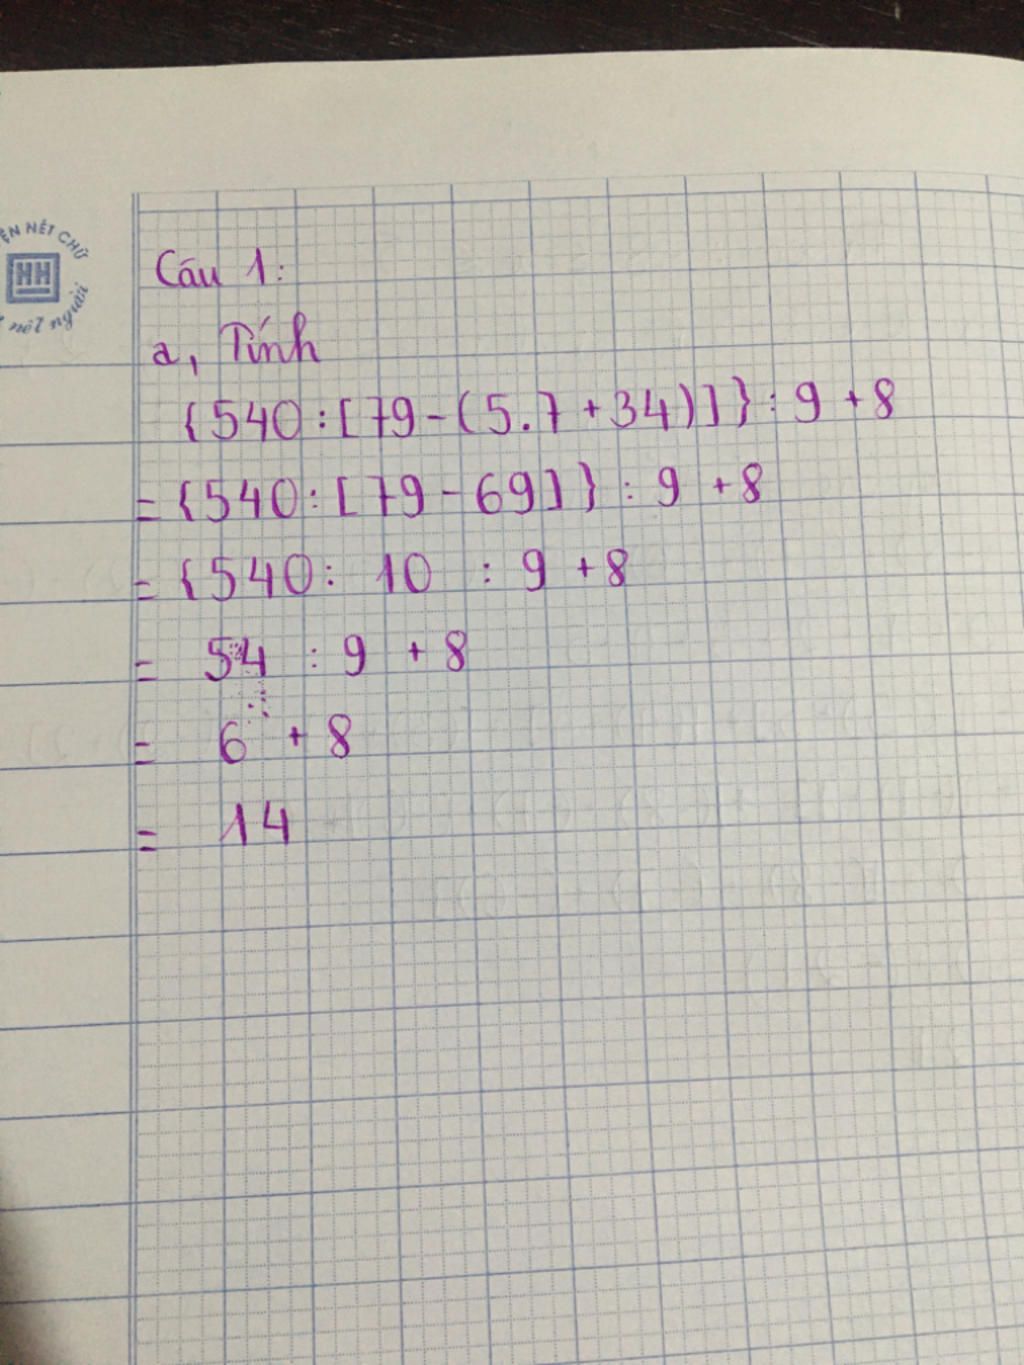 ỆN NÉT CHỮ
HH
nết người
Câu 1:
a, Tính
{540:[79-(5.7+34)]}:9+8
={540:[79-69]}:9+8
={540: 10 :9+8
= 54 :9 +8
= 6 +8
= 14